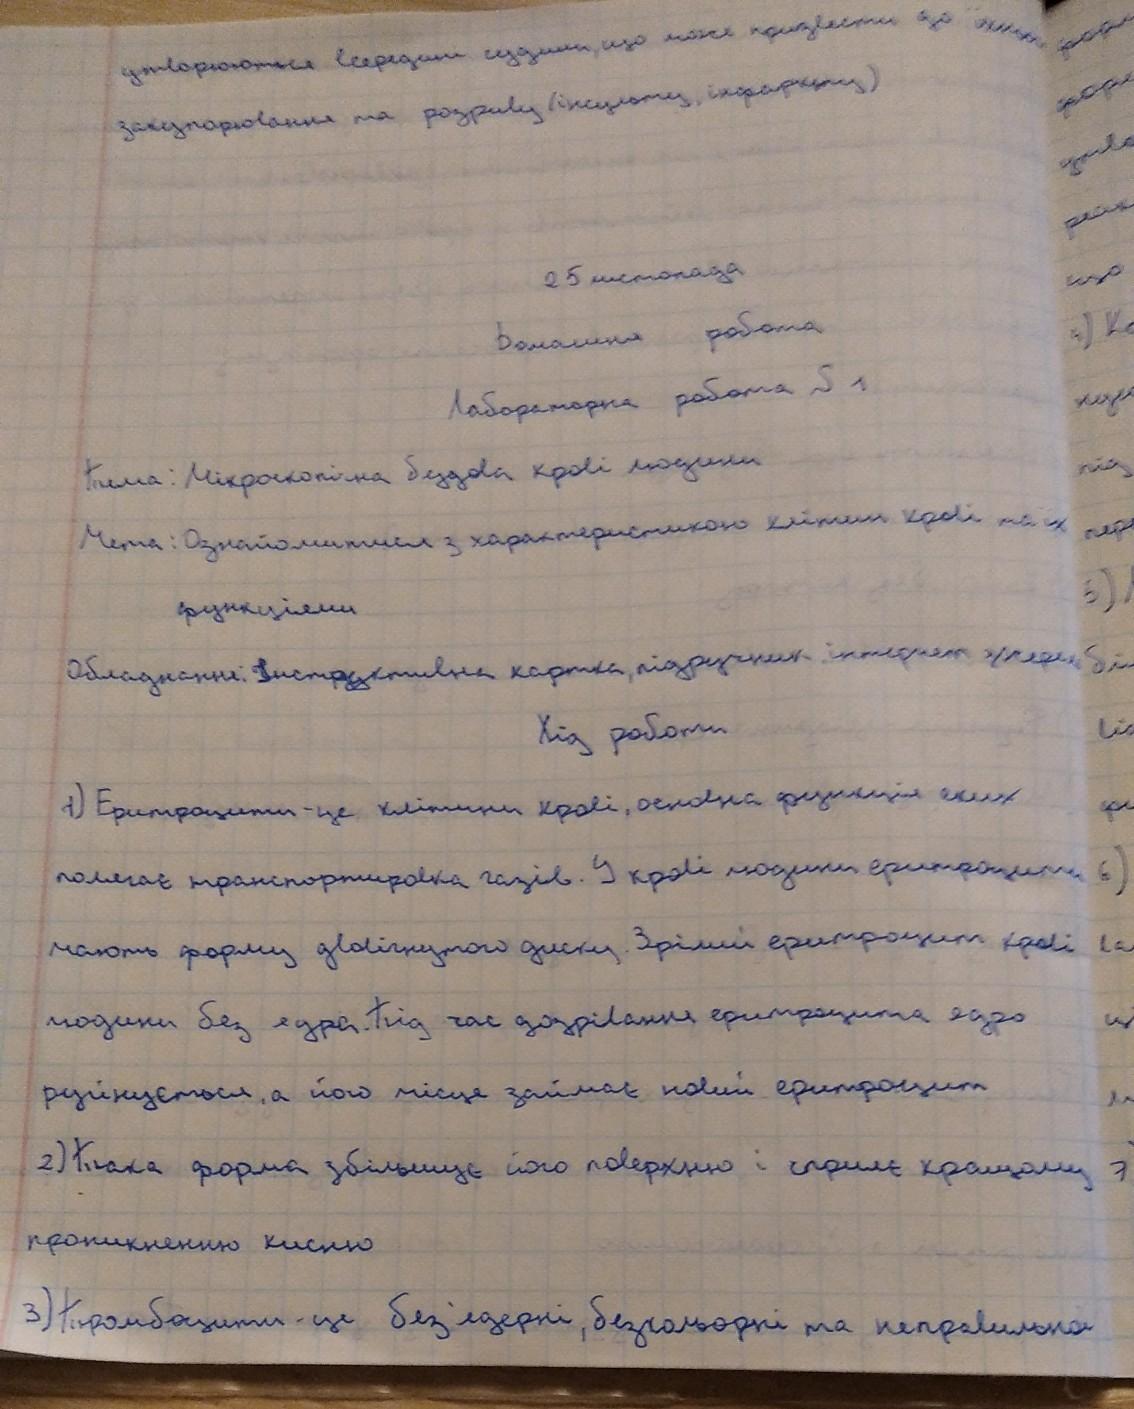 утворюються всередині судини, що може призвести до їхнього
закупорювання та розриву (інсульту, інфаркту)
25 листопада
Домашня робота
Лабораторна робота № 1
Тема: Мікроскопічна будова крові людини
Мета: Ознайомитися з характеристикою клітин крові та їх
функціями
Обладнання: Інструктивна картка, підручник, інтернет
Хід роботи
1) Еритроцити - це клітини крові, основна функція яких
полягає транспортировка газів. У крові людини еритроцити
мають форму двовігнутого диску. Зрілий еритроцит крові
людини без ядра. Під час дозрівання еритроцита ядро
руйнується, а його місце займає новий еритроцит
2) Така форма збільшує його поверхню і сприяє кращому
проникненню кисню
3) Тромбоцити - це без'ядерні, безкольорні та неправильної